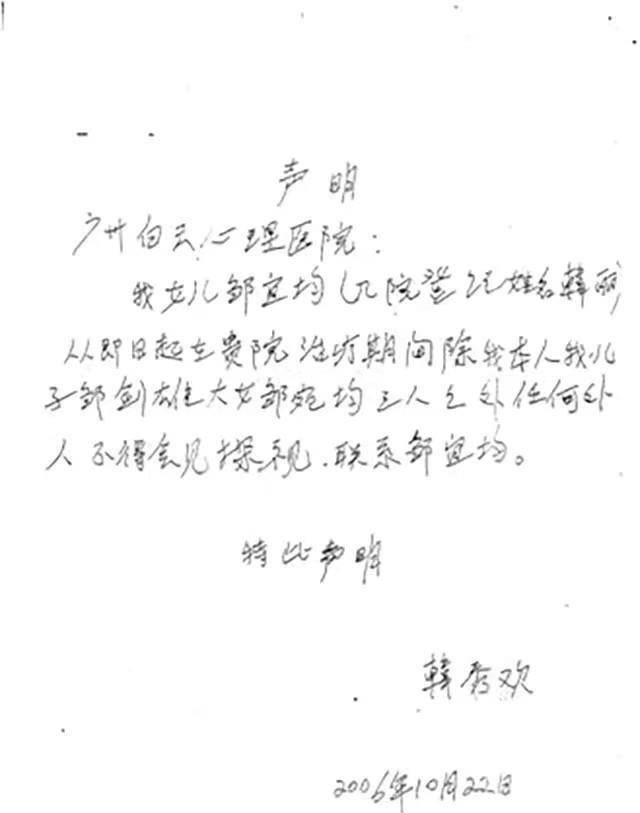 声明
广州白云心理医院：
我女儿邹宜均（入院登记姓名韩
从即日起在贵院治疗期间除我本人我儿
子邹剑雄大女邹宛均三人之外任何外
人不得会见探视、联系邹宜均。
特此声明
韩秀欢
2006年10月22日